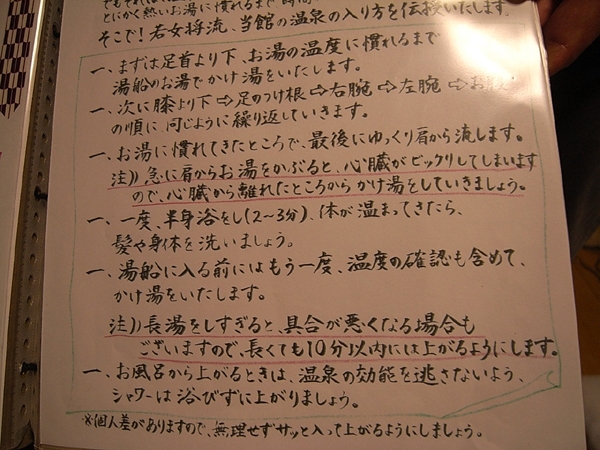 とにかく熱いお湯に慣れるまで
そこで！若女将流、当館の温泉の入り方を伝授いたします。
一、まずは足首より下、お湯の温度に慣れるまで
湯船のお湯でかけ湯をいたします。
一、次に膝より下⇨足のつけ根⇨右腕⇨左腕⇨お腹
の順に、同じように繰り返していきます。
一、お湯に慣れてきたところで、最後にゆっくり肩から流します。
注)) 急に肩からお湯をかぶると、心臓がビックリしてしまいます
ので、心臓から離れたところからかけ湯をしていきましょう。
一、一度、半身浴をし(2〜3分)、体が温まってきたら、
髪や身体を洗いましょう。
一、湯船に入る前にはもう一度、温度の確認も含めて、
かけ湯をいたします。
注)) 長湯をしすぎると、具合が悪くなる場合も
ございますので、長くても10分以内には上がるようにします。
一、お風呂から上がるときは、温泉の効能を逃さないよう、
シャワーは浴びずに上がりましょう。
※個人差がありますので、無理せずサッと入って上がるようにしましょう。